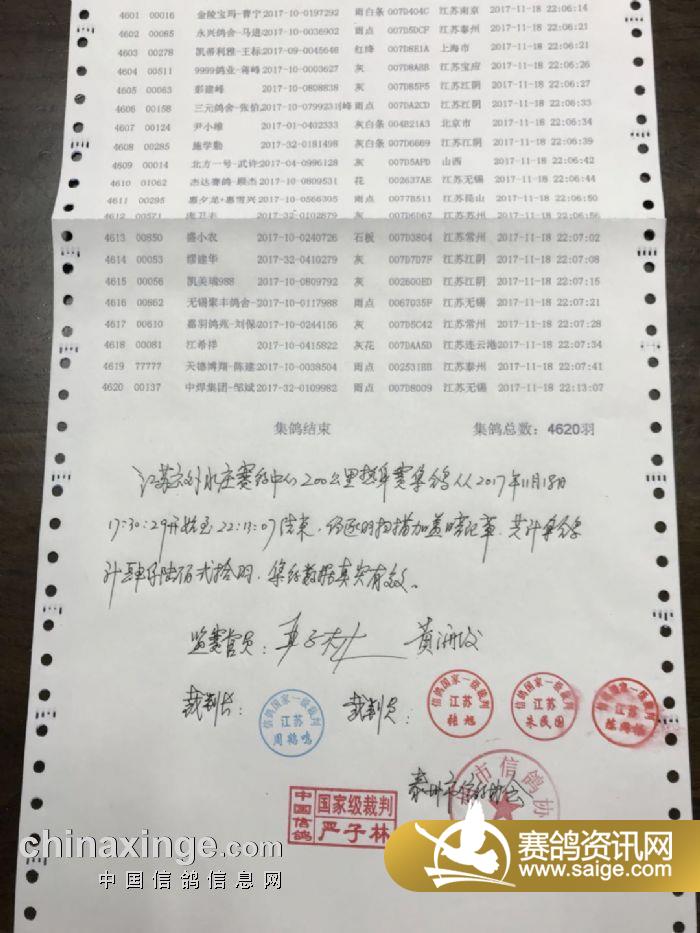 4601 00016 金陵宝玛-曹宁 2017-10-0197292 雨白条 007D404C 江苏南京 2017-11-18 22:06:14
4602 00065 永兴鸽舍-马进 2017-10-0036902 雨点 007D5DCF 江苏泰州 2017-11-18 22:06:21
4603 00278 凯蒂利雅-王标 2017-09-0045646 红绛 007D8E1A 上海市 2017-11-18 22:06:21
4604 00511 9999鸽业-蒋峰 2017-10-0003627 灰 007D8ABB 江苏宝应 2017-11-18 22:06:26
4605 00063 彭建峰 2017-10-0808838 灰 007D85F5 江苏江阴 2017-11-18 22:06:27
4606 00158 三元鸽舍-张伯 2017-10-0799231 峰 雨点 007DA2CD 江苏江阴 2017-11-18 22:06:33
4607 00124 尹小维 2017-01-0402333 灰白条 004B21A3 北京市 2017-11-18 22:06:34
4608 00285 施学勤 2017-32-0181498 灰白条 007D6669 江苏江阴 2017-11-18 22:06:39
4609 00014 北方一号-武诗 2017-04-0996128 灰 007D5AFD 山西 2017-11-18 22:06:42
4610 01062 杰达赛鸽-顾杰 2017-10-0809531 花 002637AE 江苏无锡 2017-11-18 22:06:44
4611 00295 惠夕龙+惠雪兴 2017-10-0566305 雨点 0077B511 江苏昆山 2017-11-18 22:06:50
4612 00571 2017-32-0102879 灰 007D6D67 江苏苏州 2017-11-18 22:06:56
4613 00850 盛小农 2017-10-0240726 石板 007D3804 江苏常州 2017-11-18 22:07:02
4614 00053 缪建华 2017-32-0410279 灰 007D7D7F 江苏江阴 2017-11-18 22:07:08
4615 00056 凯美瑞988 2017-10-0809792 灰 002600ED 江苏江阴 2017-11-18 22:07:15
4616 00862 无锡聚丰鸽舍- 2017-10-0117988 雨点 0067035F 江苏无锡 2017-11-18 22:07:21
4617 00610 嘉羽鸽苑-刘保 2017-10-0244156 灰 007D5C42 江苏常州 2017-11-18 22:07:28
4618 00081 江希祥 2017-10-0415822 灰花 007DAA5D 江苏连云港 2017-11-18 22:07:34
4619 77777 天德博翔-陈建 2017-10-0038504 雨点 002531BB 江苏泰州 2017-11-18 22:07:41
4620 00137 中焊集团-邹斌 2017-32-0109982 雨点 007D8009 江苏无锡 2017-11-18 22:13:07
集鸽结束 集鸽总数：4620羽
江苏 赛鸽中心200公里 赛集鸽从2017年11月18日
17:30:29开始至22:13:07结束，经逐羽扫描加盖暗记章，共计集鸽
计肆仟陆佰贰拾羽，集鸽数据真实有效。
监赛官员：
裁判长： 裁判员：
信鸽国家一级裁判 江苏 周鹤鸣
信鸽国家一级裁判 江苏 张旭
信鸽国家一级裁判 江苏 朱民国
江苏
泰州市信鸽协会
市信鸽协
中国信鸽 国家级裁判 严子林
chinaxinge.com
中国信鸽信息网
赛鸽资讯网
www.saige.com